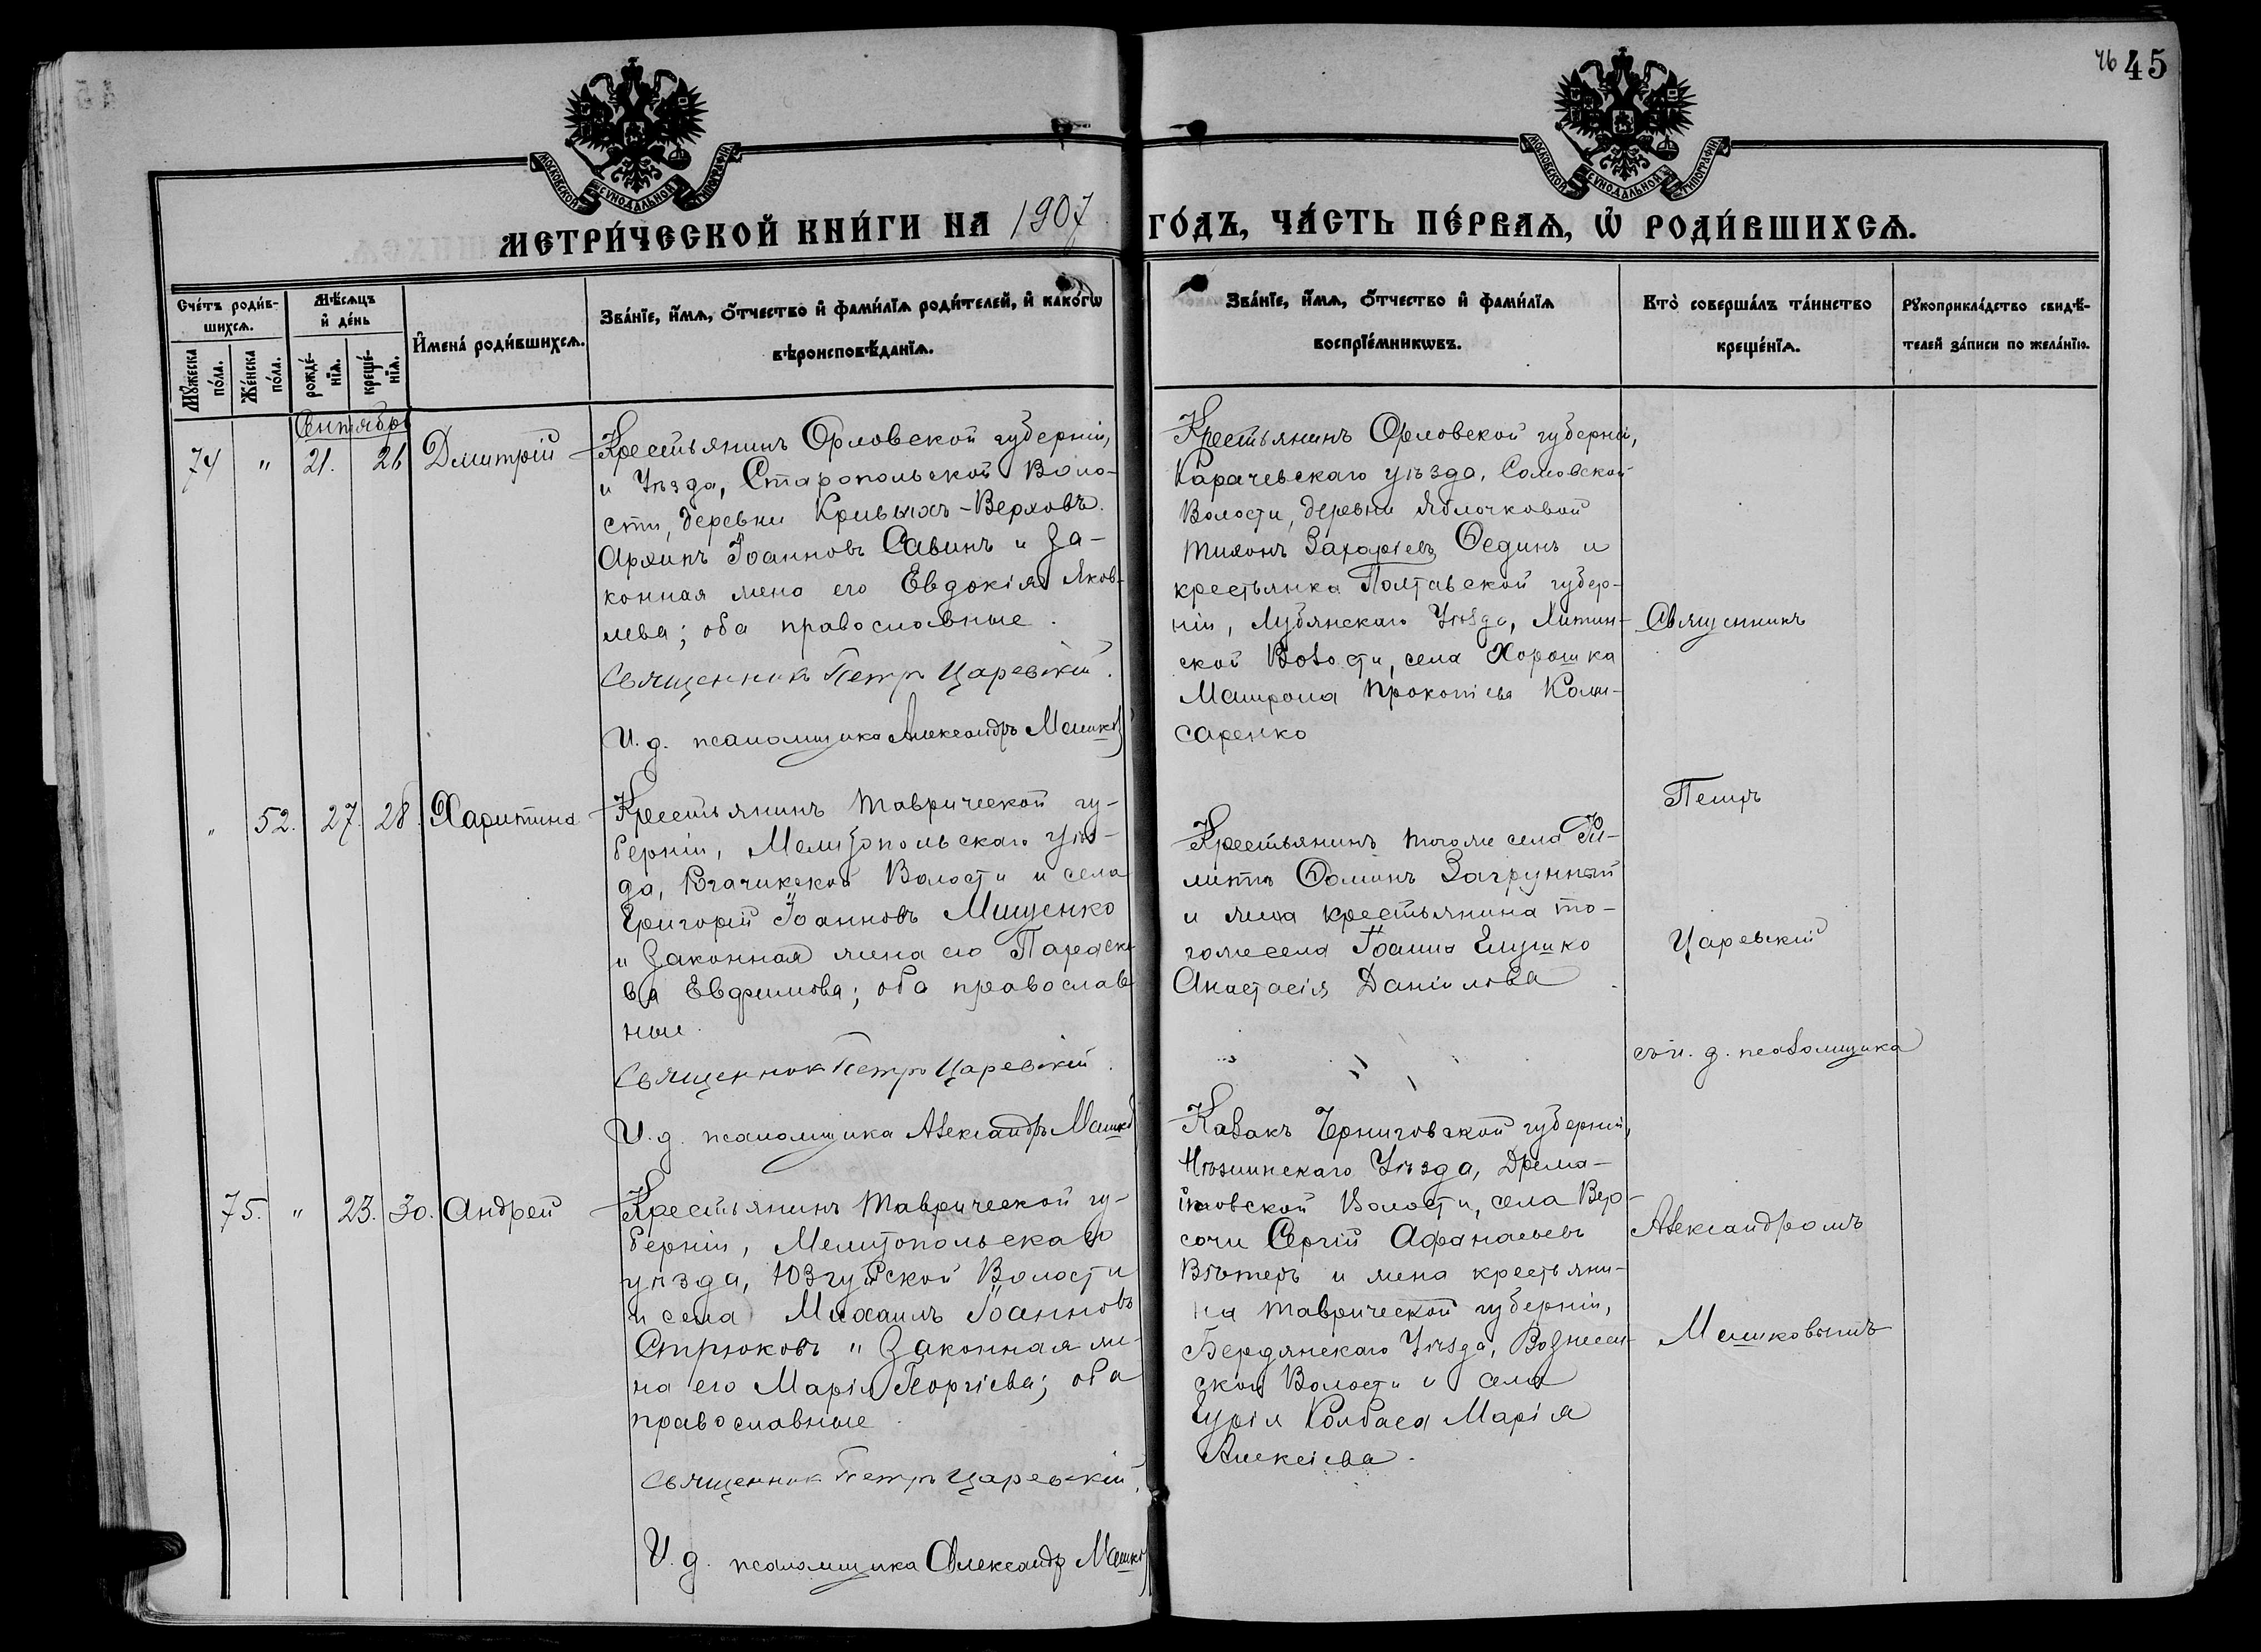 46 45
МОСКОВСКОЙ СѴНОДАЛЬНОЙ ТИПОГРАФІИ
МОСКОВСКОЙ СѴНОДАЛЬНОЙ ТИПОГРАФІИ
МЕТРИ́ЧЕСКОЙ КНИ́ГИ НА 1907 ГО́ДЪ, ЧА́СТЬ ПЕ́РВАѦ, Ѡ҆ РОДИ́ВШИХСѦ.
Сче́тъ роди́в-
шихсѧ.
Мꙋ́жеска по́ла.
Же́нска по́ла.
Мѣ́сѧцъ
и҆ де́нь
рожде́-
нїѧ.
креще́-
нїѧ.
И҆мена̀ роди́вшихсѧ.
Зва́нїе, и҆́мѧ, ѻ҆́тчество и҆ фами́лїѧ роди́телей, и҆ како́гѡ
вѣроисповѣ́данїѧ.
Зва́нїе, и҆́мѧ, ѻ҆́тчество и҆ фами́лїѧ
воспрїе́мникѡвъ.
Кто̀ соверша́лъ та́инство
креще́нїѧ.
Рꙋкоприкла́дство свидѣ́-
телей за́писи по жела́нїю.
Сентябрь
74 " 21. 26 Дмитрій
Крестьянинъ Орловской губерніи,
и Уѣзда, Старопольской Воло-
сти, деревни Кривыхъ-Верховъ
Архипъ Іоанновъ Савинъ и За-
конная жена его Евдокія Яков-
лева; оба православные.
Священникъ Петръ Царевскій.
И. д. псаломщика Александръ Машков
Крестьянинъ Орловской губерніи,
Карачевскаго уѣзда, Сомовской
Волости, деревни Яблочковой
Тихонъ Захаріевъ Фединъ и
крестьянка Полтавской губер-
ніи, Лубянскаго Уѣзда, Литин-
ской Волости, села Хорошка
Матрона Прокопіева Коми-
саренко
" 52. 27. 28. Харитина
Крестьянинъ Таврической гу-
берніи, Мелитопольскаго уѣз-
да, Рогачикской Волости и села
Григорій Іоанновъ Мищенко
и Законная жена его Параске-
ва Евфимова; оба православ-
ные.
Священникъ Петръ Царевскій.
И. д. псаломщика Александръ Машков
Крестьянинъ тогоже села
Фоминъ Загрунный
и жена крестьянина то-
гоже села Іоанна
Анастасія Даніилова
75. " 23. 30. Андрей
Крестьянинъ Таврической гу-
берніи, Мелитопольскаго
уѣзда, Юзгуйской Волости
и села Михаилъ Іоанновъ
Стрюковъ и Законная же-
на его Марія Георгіева; оба
православные.
Священникъ Петръ Царевскій.
И. д. псаломщика Александр Машков
Казакъ Черниговской губерніи,
Нѣжинскаго Уѣзда, Дрема-
йловской Волости, села Вер-
сочи Сергій Афанасьевъ
Вѣтеръ и жена крестьяни-
на Таврической губерніи,
Бердянскаго Уѣзда, Вознесен-
ской Волости и села
Гурія Колбаса Марія
Алексіева.
Священникъ
Петръ
Царевскій
съ и. д. псаломщика
Александромъ
Машковымъ